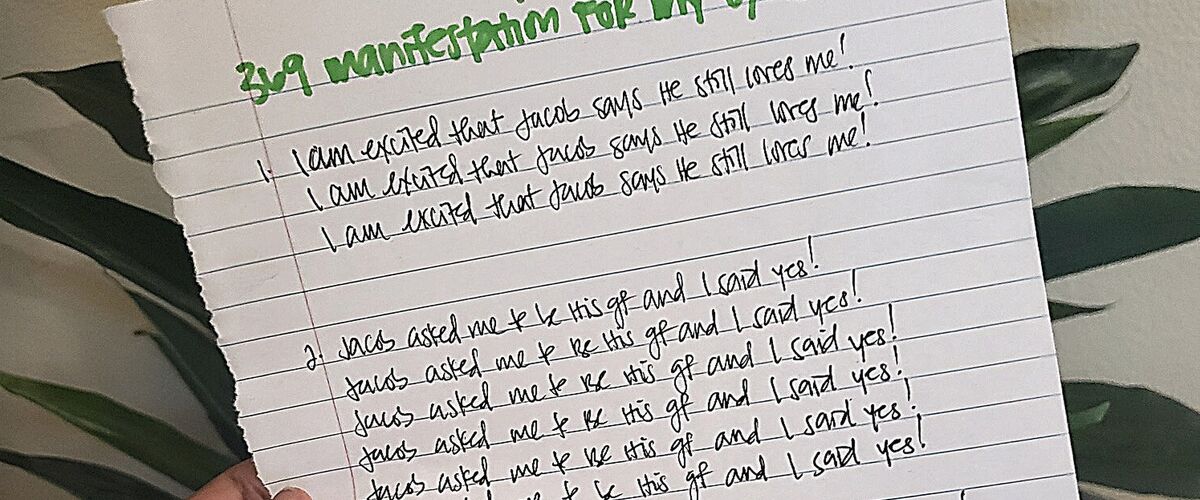 369 manifestation for my
1. I am excited that Jacob says He still loves me!
I am excited that Jacob says He still loves me!
I am excited that Jacob says He still loves me!
2. Jacob asked me to be His gf and I said yes!
Jacob asked me to be His gf and I said yes!
Jacob asked me to be His gf and I said yes!
Jacob asked me to be His gf and I said yes!
Jacob asked me to be His gf and I said yes!
me to be His gf and I said yes!